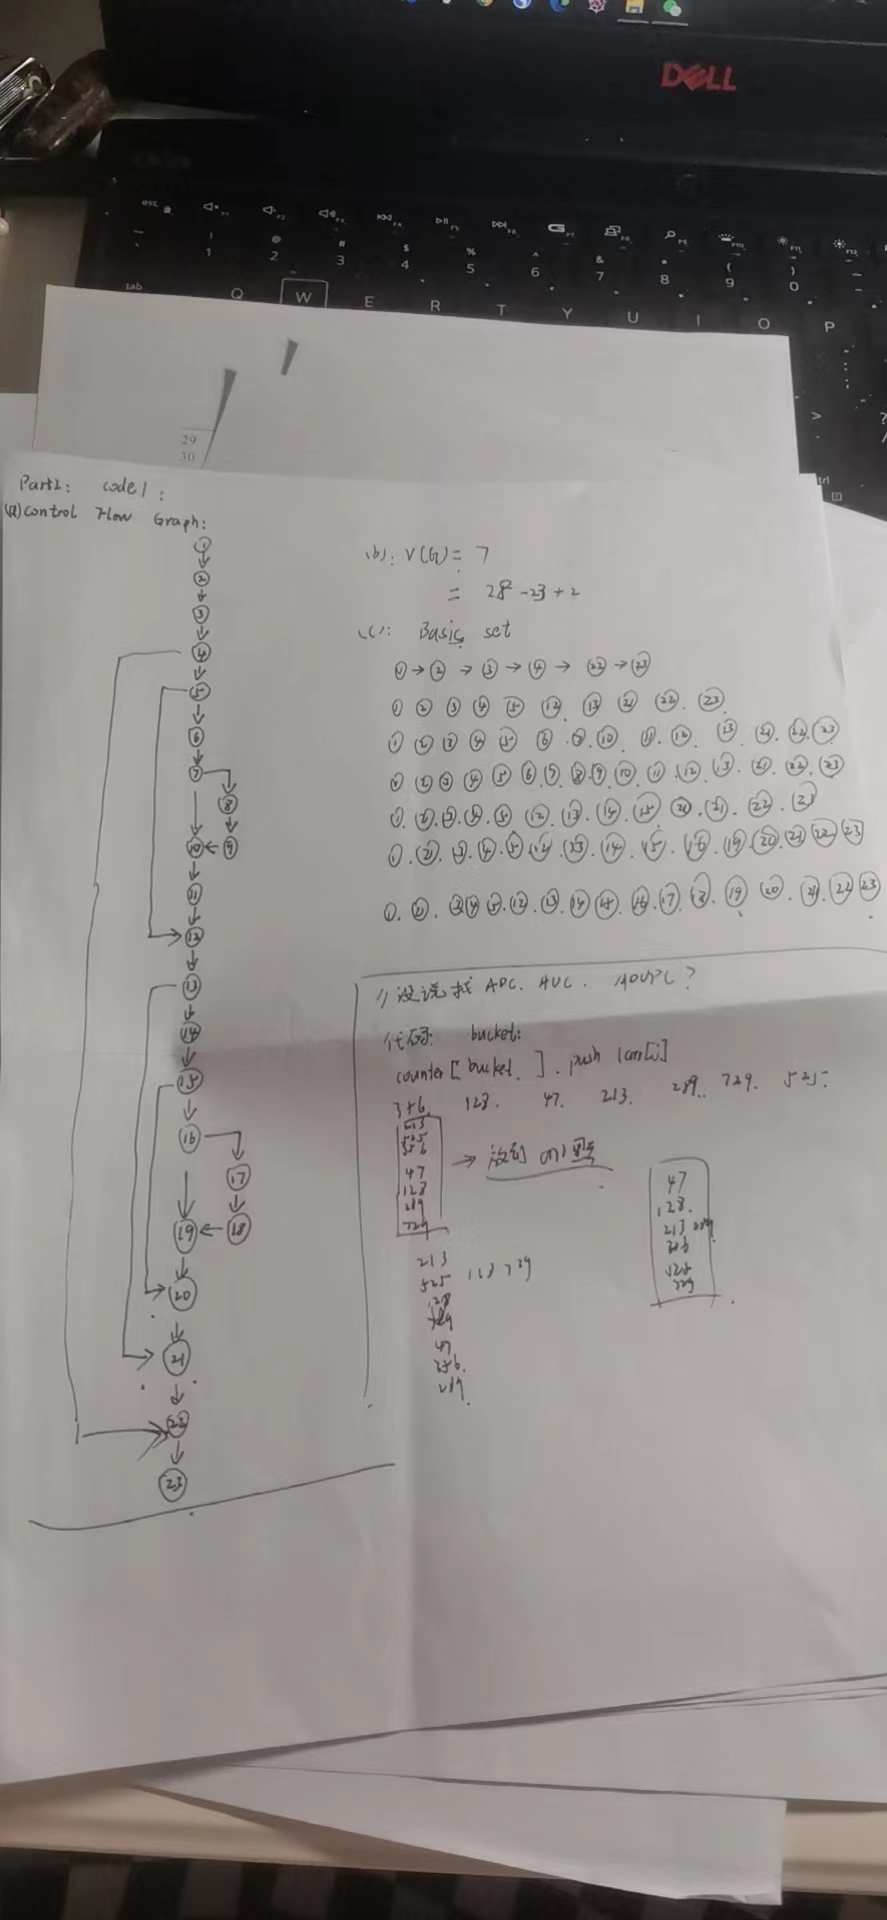 DELL
esc F1 F2 F3 F4 F5 F6 F7 F8 F9 F10 F11 F12
! @ # $ % ^ & * ( )
1 2 3 4 5 6 7 8 9 0
tab Q W E R T Y U I O P
29
30
> ?
ctrl
code1:
(a) Control Flow Graph:
1
2
3
4
5
6
7
8
10 9
11
12
13
14
15
16
17
19 18
20
21
22
23
(b): V(G) = 7
= 28 - 23 + 2
(c): Basic set
1 → 2 → 3 → 4 → 22 → 23
1 2 3 4 5 12 13 21 22 23
1 2 3 4 5 6 7 10 11 12 13 21 22 23
1 2 3 4 5 6 7 8 9 10 11 12 13 21 22 23
1 2 3 4 5 12 13 14 15 20 21 22 23
1 2 3 4 5 12 13 14 15 16 19 20 21 22 23
1 2 3 4 5 12 13 14 15 16 17 18 19 20 21 22 23
// 没说找 ADC. AUC. ADUPC?
代码: bucket:
counter[bucket]. push
356. 128. 47. 213. 289. 729. 525.
213
525
356
47
128
289
729
→ 放到
47
128.
213 289
356
525
729
213
525
128
729
47
356.
289.